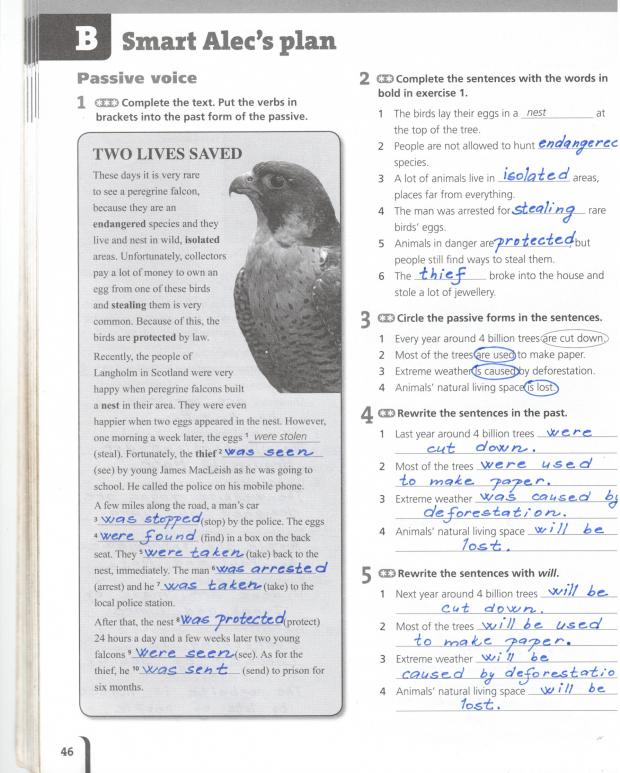 B Smart Alec's plan
Passive voice
1 Complete the text. Put the verbs in
brackets into the past form of the passive.
TWO LIVES SAVED
These days it is very rare
to see a peregrine falcon,
because they are an
endangered species and they
live and nest in wild, isolated
areas. Unfortunately, collectors
pay a lot of money to own an
egg from one of these birds
and stealing them is very
common. Because of this, the
birds are protected by law.
Recently, the people of
Langholm in Scotland were very
happy when peregrine falcons built
a nest in their area. They were even
happier when two eggs appeared in the nest. However,
one morning a week later, the eggs 1 were stolen
(steal). Fortunately, the thief 2 was seen
(see) by young James MacLeish as he was going to
school. He called the police on his mobile phone.
A few miles along the road, a man's car
3 was stopped (stop) by the police. The eggs
4 were found (find) in a box on the back
seat. They 5 were taken (take) back to the
nest, immediately. The man 6 was arrested
(arrest) and he 7 was taken (take) to the
local police station.
After that, the nest 8 was protected (protect)
24 hours a day and a few weeks later two young
falcons 9 were seen (see). As for the
thief, he 10 was sent (send) to prison for
six months.
46
2 Complete the sentences with the words in
bold in exercise 1.
1 The birds lay their eggs in a nest at
the top of the tree.
2 People are not allowed to hunt endangerec
species.
3 A lot of animals live in isolated areas,
places far from everything.
4 The man was arrested for stealing rare
birds' eggs.
5 Animals in danger are protected, but
people still find ways to steal them.
6 The thief broke into the house and
stole a lot of jewellery.
3 Circle the passive forms in the sentences.
1 Every year around 4 billion trees are cut down.
2 Most of the trees are used to make paper.
3 Extreme weather is caused by deforestation.
4 Animals' natural living space is lost.
4 Rewrite the sentences in the past.
1 Last year around 4 billion trees were
cut down.
2 Most of the trees were used
to make paper.
3 Extreme weather was caused by
deforestation.
4 Animals' natural living space will be
lost.
5 Rewrite the sentences with will.
1 Next year around 4 billion trees will be
cut down.
2 Most of the trees will be used
to make paper.
3 Extreme weather will be
caused by deforestatio
4 Animals' natural living space will be
lost.